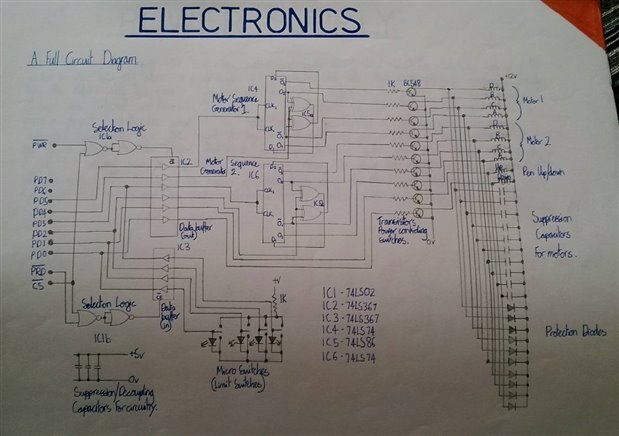 ELECTRONICS
A Full Circuit Diagram
+12v
1K
BC548
IC4
Motor Sequence
Generator 1.
Motor 1
Selection Logic
IC1a
PWR
IC2
Motor Sequence
Generator 2.
IC6
Motor 2
Pen Up/down
PD7
PD6
PD5
PD4
PD3
PD2
PD1
PD0
PRD
CS
Data buffer
(out)
IC3
Transistors
Power controlling
Switches.
0v
Suppression
Capacitors
For motors.
Selection Logic
IC1b
Data
buffer
(in)
+V
1K
IC1 - 74LS02
IC2 - 74LS367
IC3 - 74LS367
IC4 - 74LS74
IC5 - 74LS86
IC6 - 74LS74
Protection Diodes
+5v
0v
Micro Switches
(Limit Switches)
Suppression/Decoupling
Capacitors for circuitry.